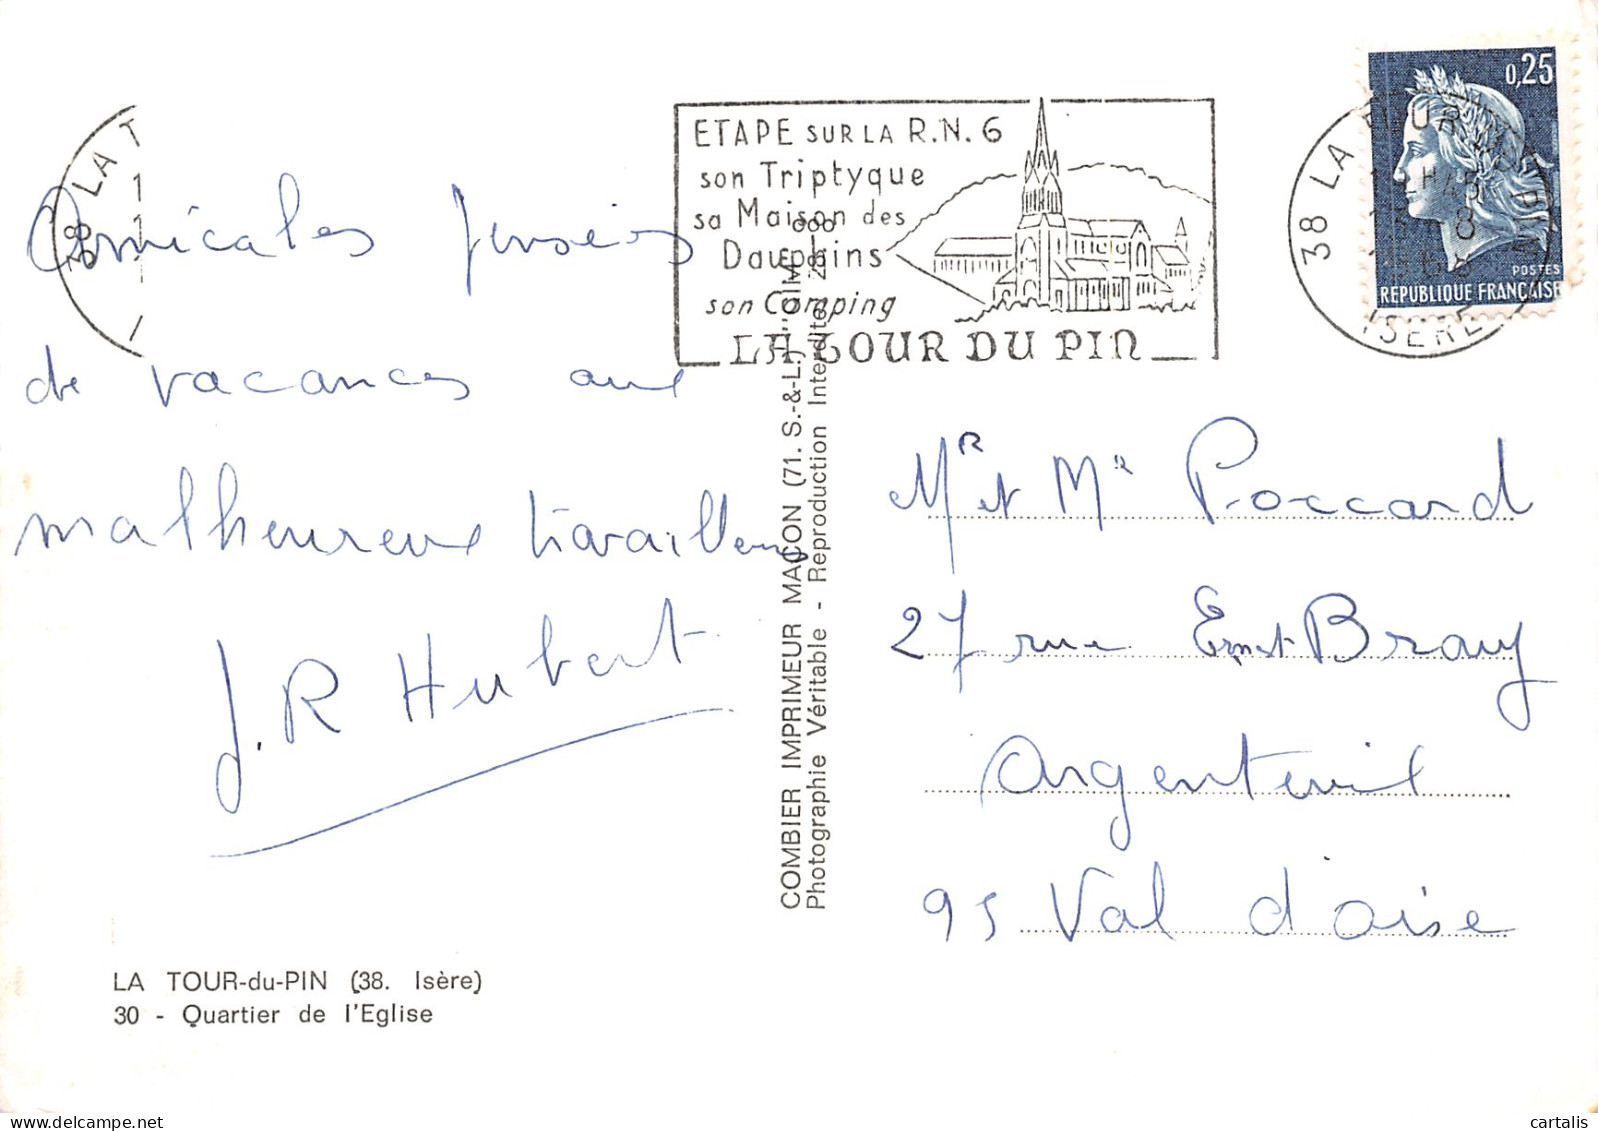 38 LA T
ETAPE SUR LA R.N. 6
son Triptyque
sa Maison des
Dauphins
son Camping
LA TOUR DU PIN
38 LA TOUR DU PIN
ISERE
0,25
POSTES
REPUBLIQUE FRANÇAISE
Amicales pensées
de vacances aux
malheureux travailleurs
J.R Hubert
COMBIER IMPRIMEUR MACON (71. S.-&-L.) "CIM"
Photographie Véritable - Reproduction Interdite
Mr et Mr Poccard
27 rue Ernst Bray
Argenteuil
95 Val d'oise
LA TOUR-du-PIN (38. Isère)
30 - Quartier de l'Eglise
cartalis
delcampe.net